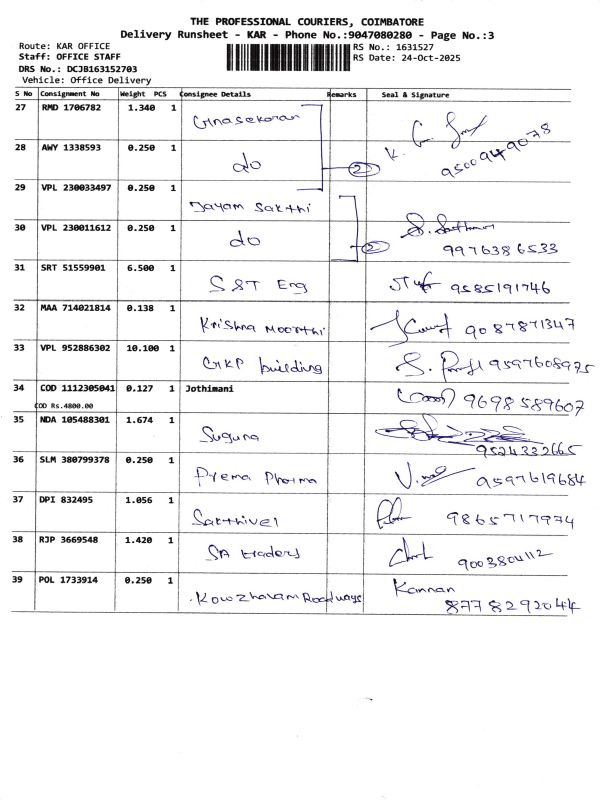 THE PROFESSIONAL COURIERS, COIMBATORE
Delivery Runsheet - KAR - Phone No.:9047080280 - Page No.:3
Route: KAR OFFICE RS No.: 1631527
Staff: OFFICE STAFF RS Date: 24-Oct-2025
DRS No.: DCJB163152703
Vehicle: Office Delivery
S No Consignment No Weight PCS Consignee Details Remarks Seal & Signature
27 RMD 1706782 1.340 1 Gnasekaran
28 AWY 1338593 0.250 1 do 2 9500949078
29 VPL 230033497 0.250 1 Jayam Sakthi
30 VPL 230011612 0.250 1 do 2 9976386533
31 SRT 51559901 6.500 1 SST Eng 9585191746
32 MAA 714021814 0.138 1 Krishna Moorthi 9087871347
33 VPL 952886302 10.100 1 GKP building 9597608975
34 COD 1112305041 0.127 1 Jothimani 9698589607
COD Rs.4800.00
35 NDA 105488301 1.674 1 Suguna 9524332665
36 SLM 380799378 0.250 1 Prema Pharma 9597619684
37 DPI 832495 1.056 1 Sakthivel 9865717974
38 RJP 3669548 1.420 1 SA traders 9003804112
39 POL 1733914 0.250 1 Kowzhavam Roadways Kannan 8778292044